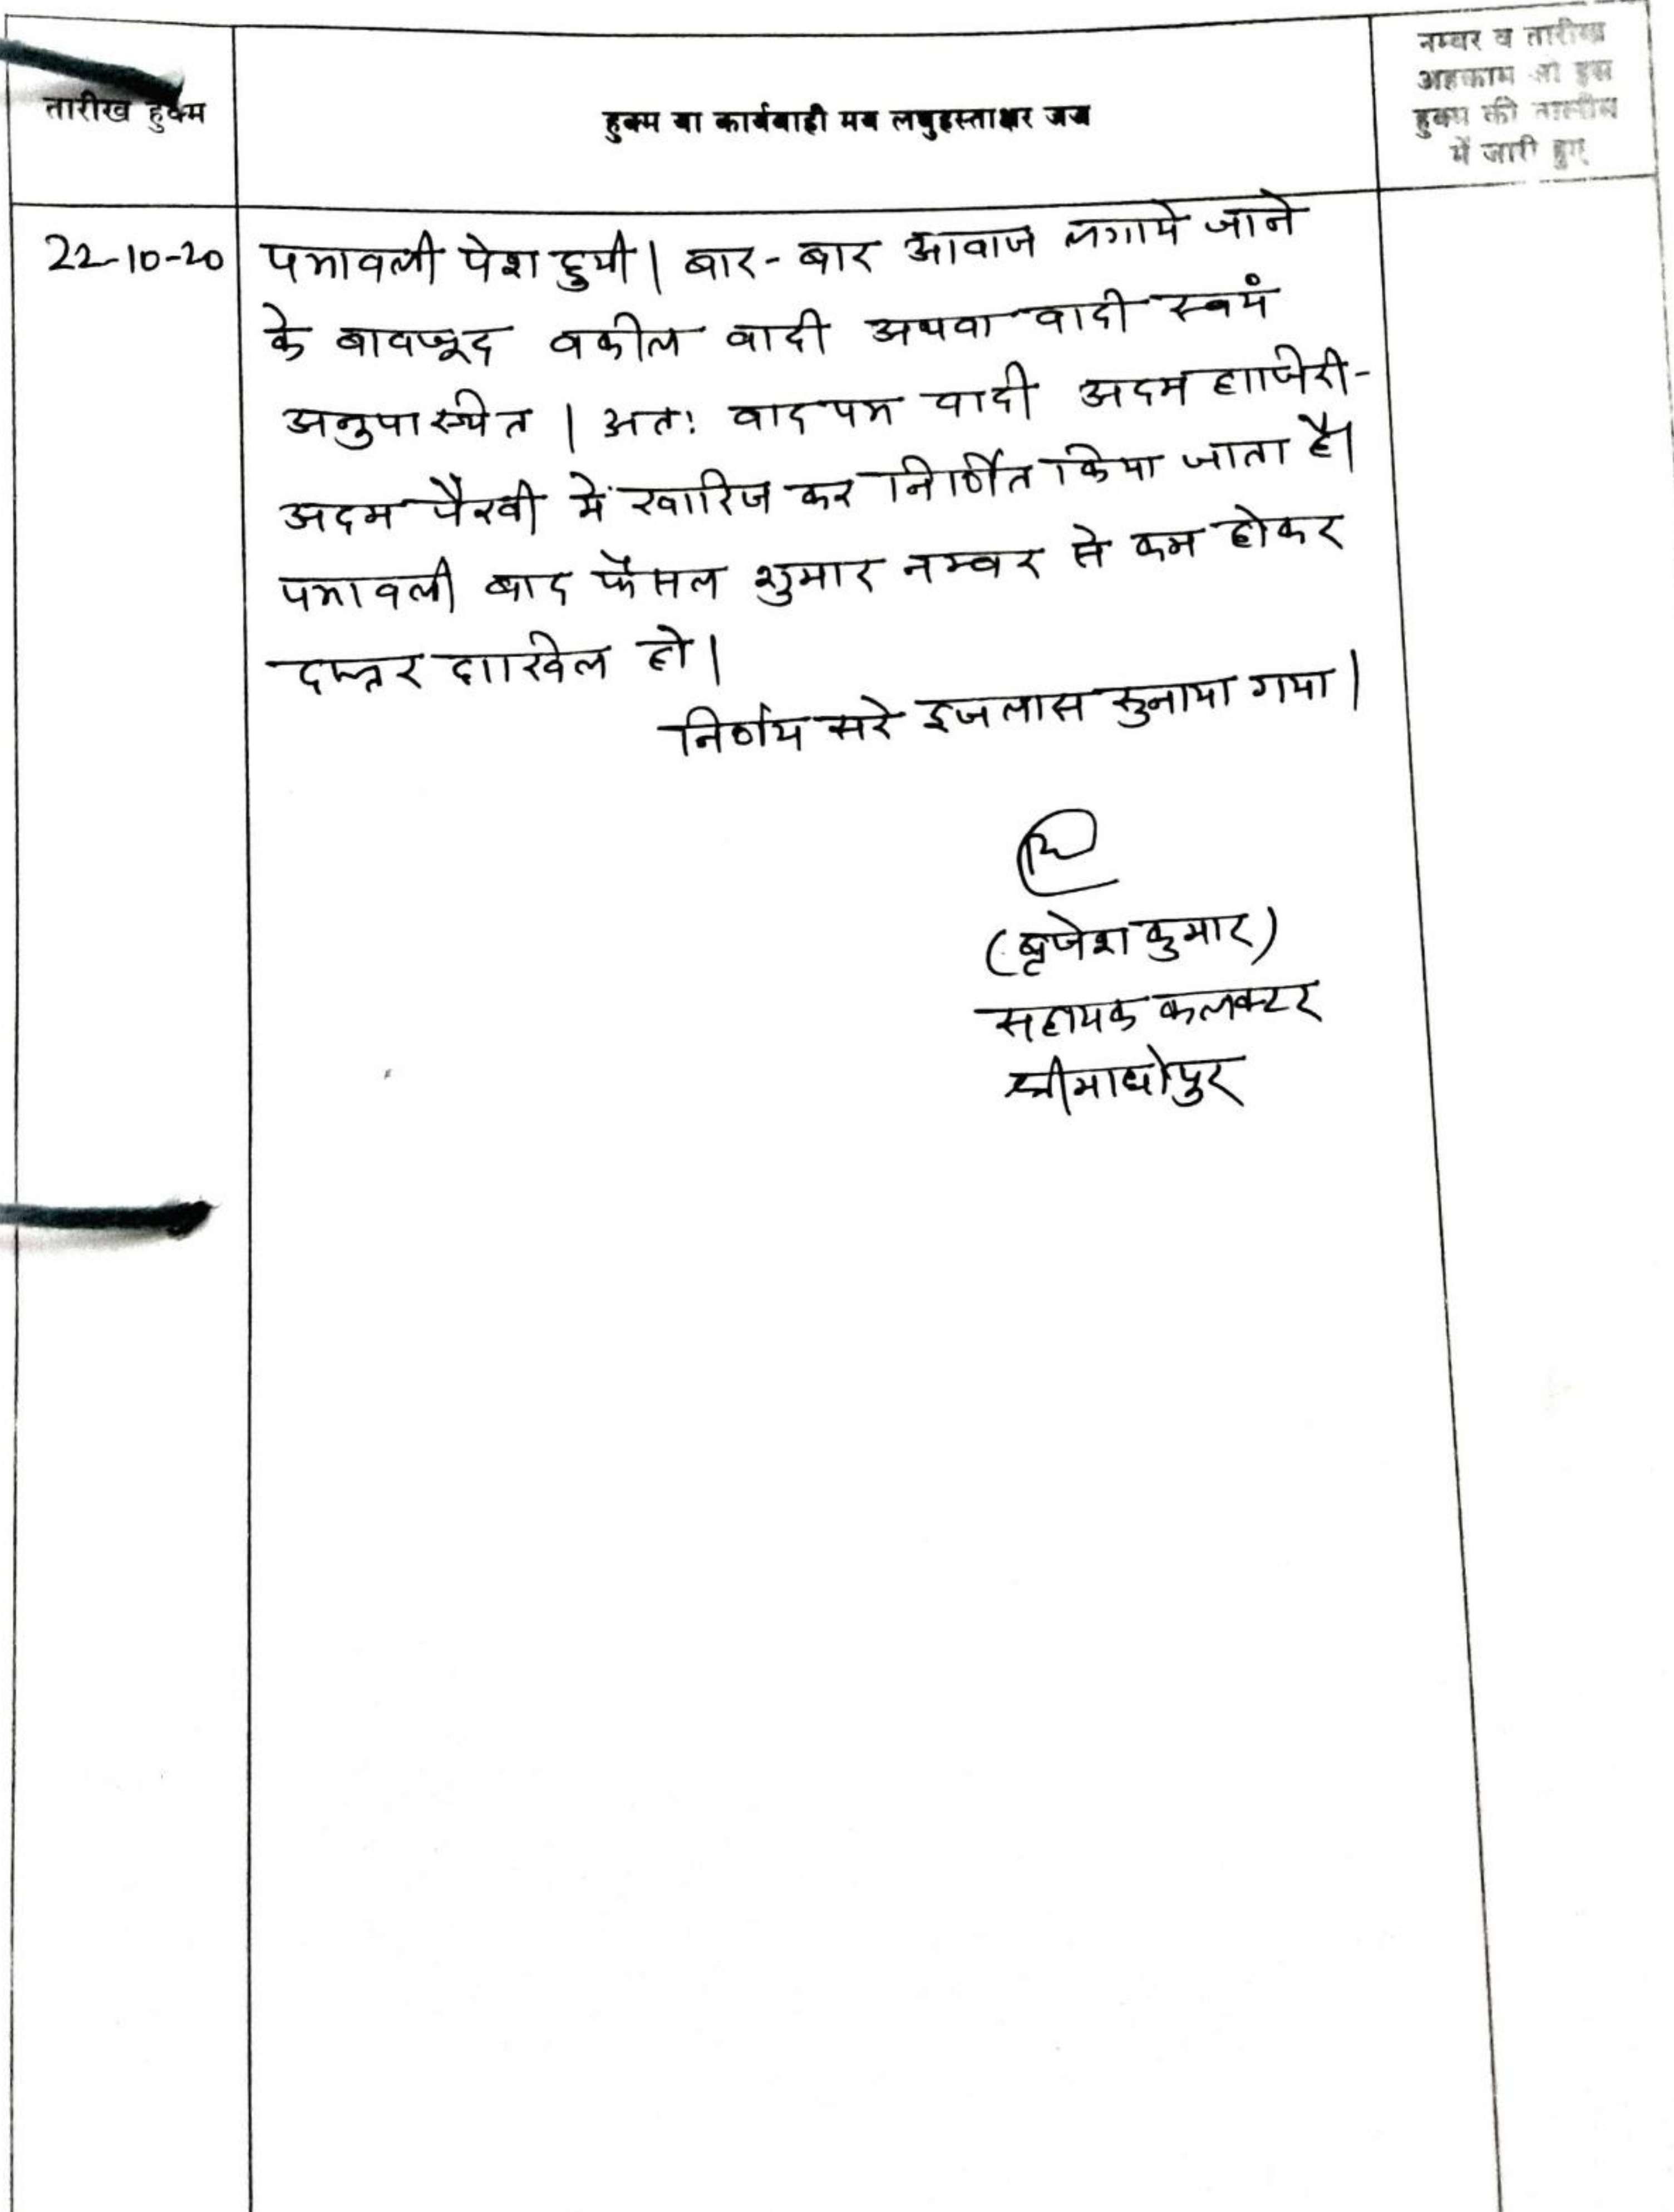 तारीख हुक्म
हुक्म या कार्यवाही मय लघुहस्ताक्षर जज
नम्बर व तारीख
अहकाम जो इस
हुक्म की तामील
में जारी हुए
22-10-20
पत्रावली पेश हुयी। बार-बार आवाज लगाये जाने
के बावजूद वकील वादी अथवा वादी स्वयं
अनुपस्थित। अतः वाद पत्र वादी अदम हाजिरी-
अदम पैरवी में खारिज कर निर्णित किया जाता है।
पत्रावली बाद फैसल शुमार नम्बर से कम होकर
दफ्तर दाखिल हो।
निर्णय सरे इजलास सुनाया गया।
(बृजेश कुमार)
सहायक कलक्टर
श्रीमाधोपुर